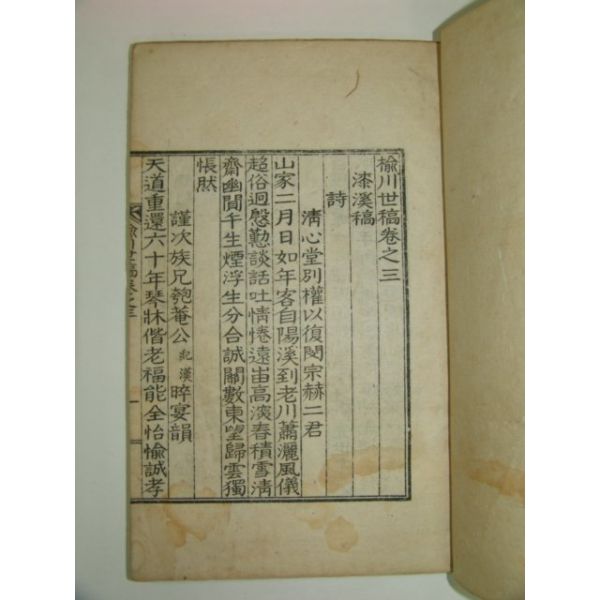 楡川世稿卷之三
漆溪稿
詩
淸心堂別權以復閔宗赫二君
山家二月日如年客自陽溪到老川蕭灑風儀
超俗逈慇懃談話吐情惓遠峀高濱春積雪淸
齋幽閴午生煙浮生分合誠關數東望歸雲獨
悵然
謹次族兄匏菴公 紀漢 晬宴韻
天道重還六十年琴牀偕老福能全怡愉誠孝
楡川世稿卷之三
一